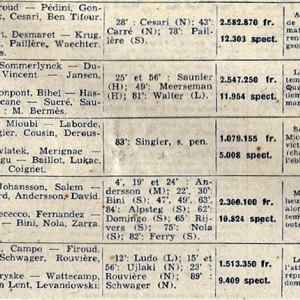 roud — Pédini, Gon-
Cesari, Ben Tifour.
rt, Desmaret — Krug,
Paillère, Waechter.
s.
28' : Cesari (N); 43'
Carré (N); 78' : Pail-
lère (S).
2.582.870 fr.
12.303 spect.
Sommerlynck — Du-
Vincent — Jansen,
onpont, Bihel — Has-
cane — Sucré, Sau-
: M. Bermès.
25' et 56' : Saunier
(H); 49' : Meerseman
(H); 81' : Walter (L).
2.547.250 fr.
11.954 spect.
Mioubi — Laborde,
gier, Cousin, Dereus-
viatek, Merignac
g — Baillot, Lukac,
Coignet.
83' : Singier, s. pen.
1.079.155 fr.
5.008 spect.
Johansson, Salem —
rd, Andersson, David.
ececco, Fernandez
— Bini, Nola, Zarra.
4', 19' et 24' : An-
dersson (M); 22', 30',
Bini (S); 47', 49', 63',
84' : Alpsteg (S); 62',
Domingo (S); 65' : Rij-
vers (S); 75' : Nola
(S); 82' : Ferry (S).
2.306.100 fr.
10.824 spect.
Campo — Firoud,
Schwager, Rouvière,
ryske — Wattecamp,
n Lent, Levandowski;
12' : Ludo (L); 15' et
56' : Ujlaki (N); 23' :
Rouvière (N); 89' :
Schwager (N).
1.513.350 fr.
9.409 spect.